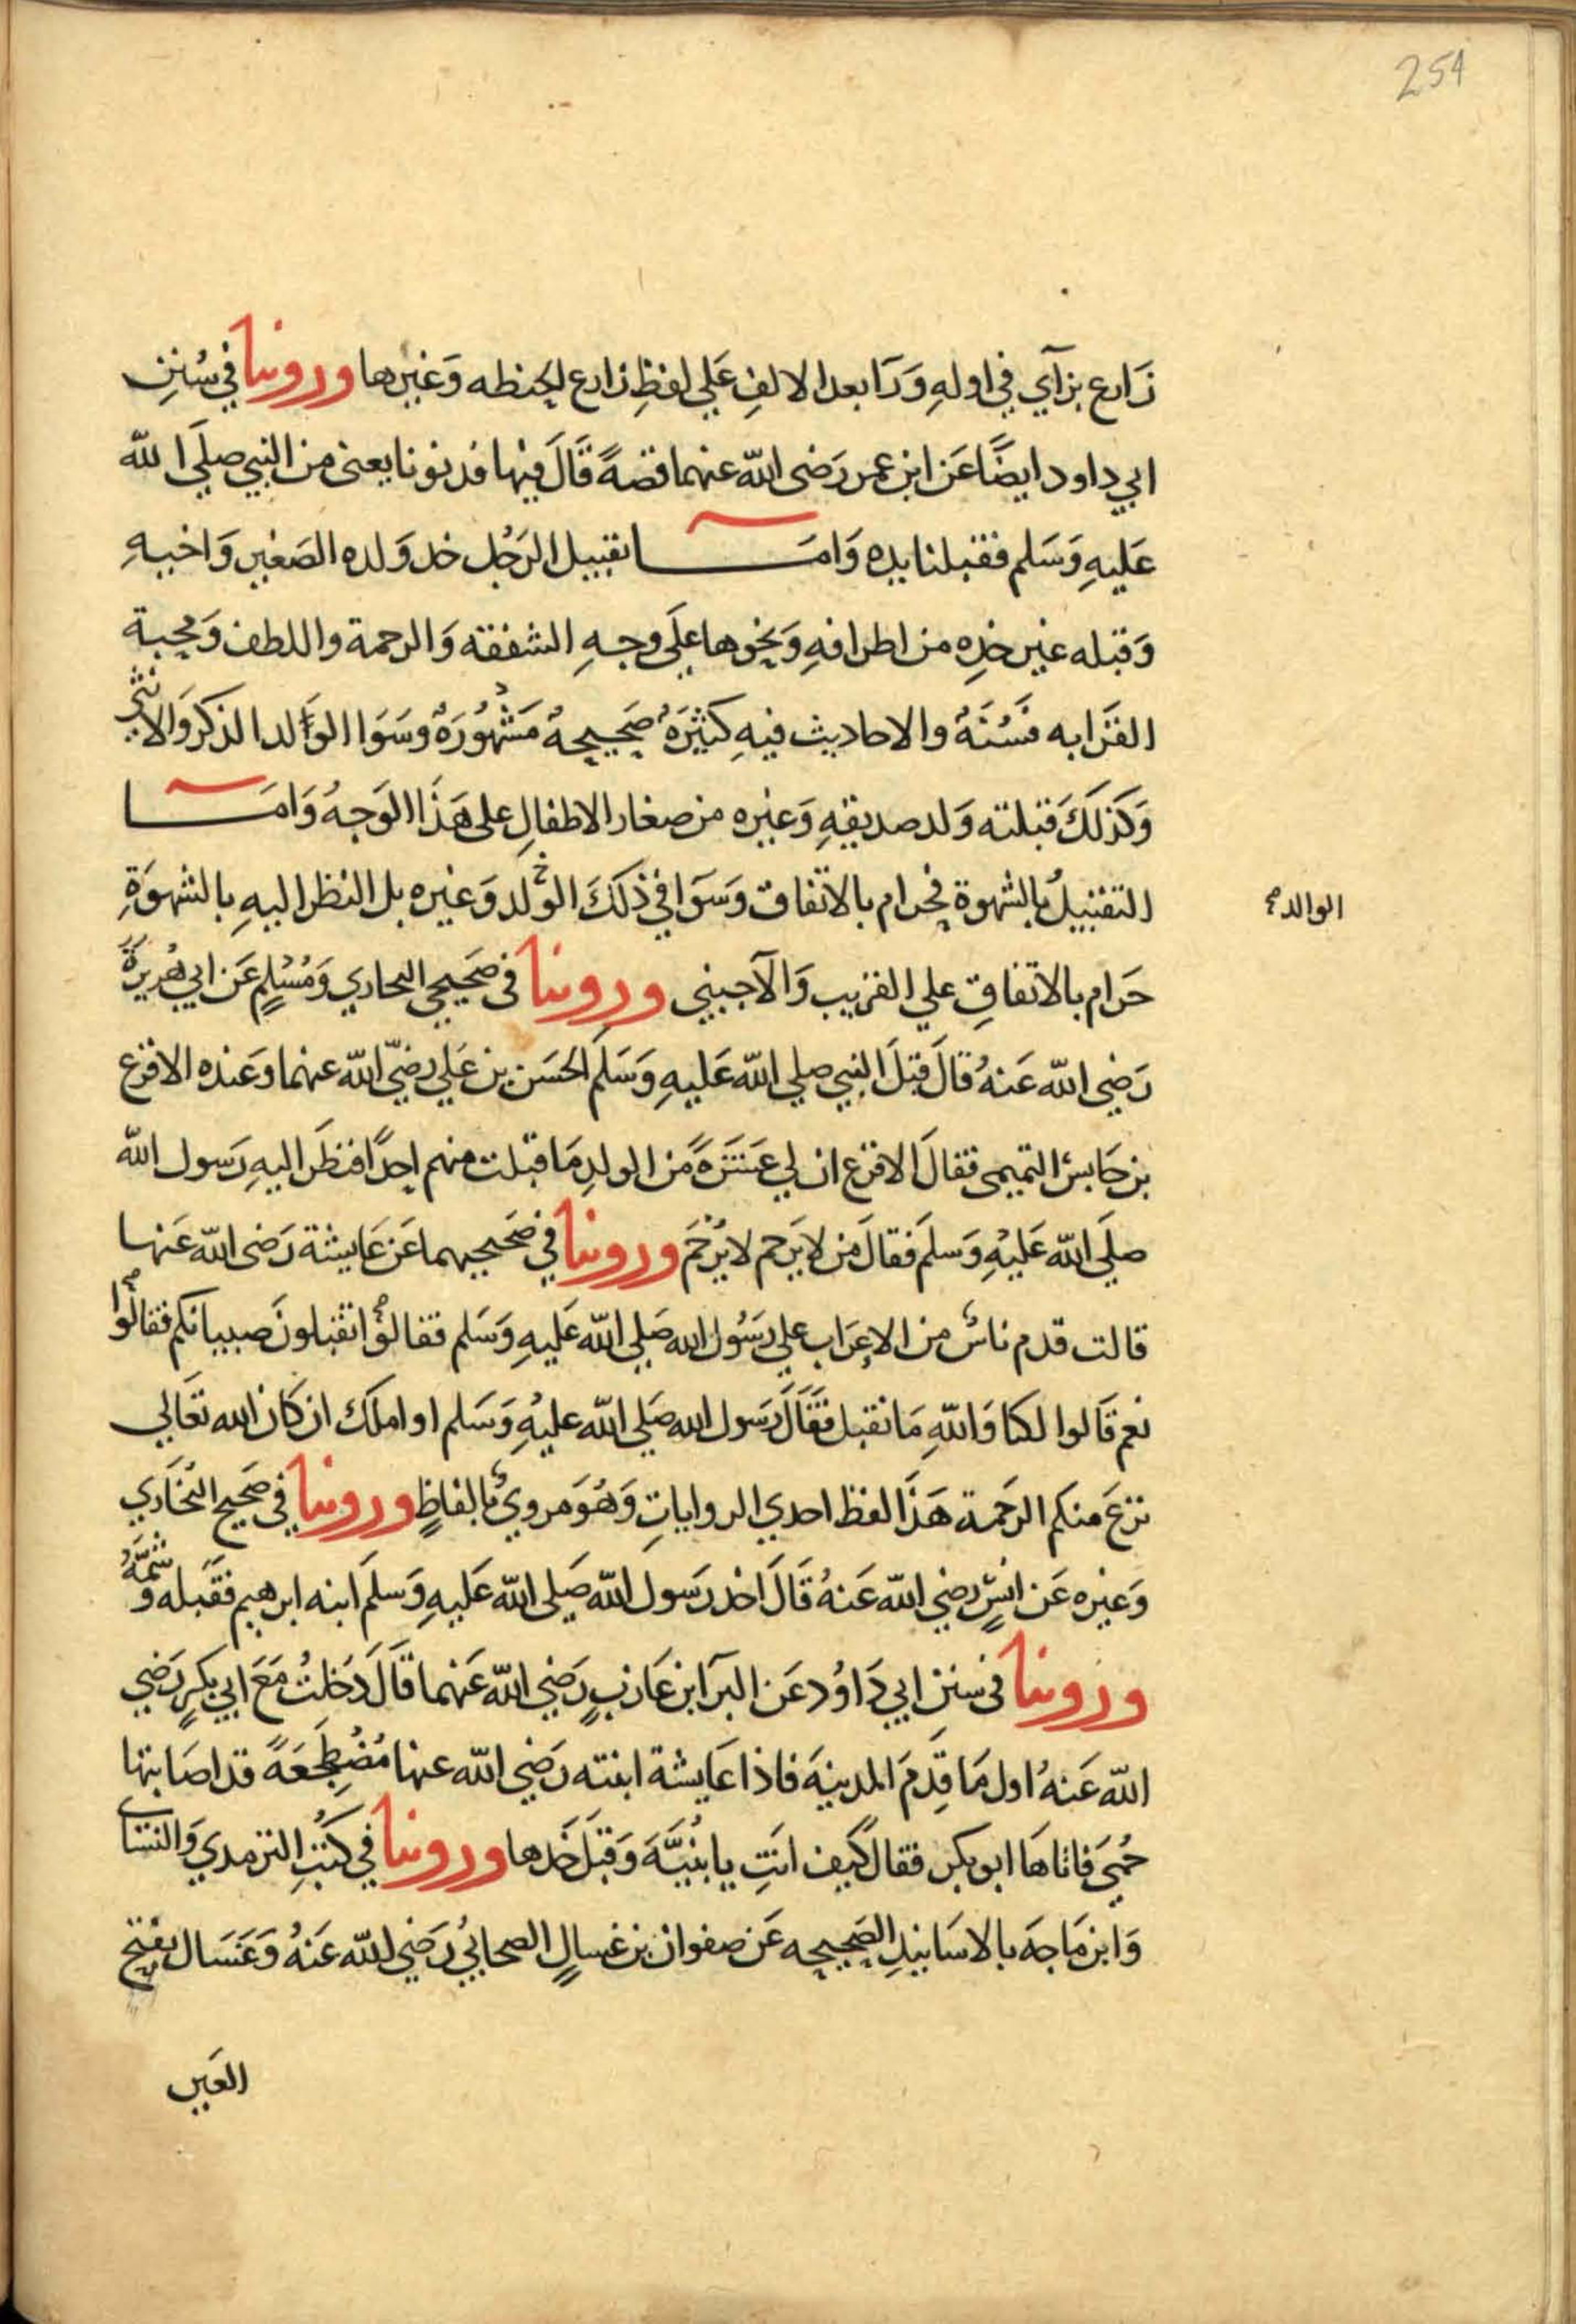 254
زَارع بزآي في اوله وَرَا بعد الالفِ عَلي لفظِ زارع الحنطه وَغيرها وروينا في سُننِ
ابي داود ايضًا عَن ابن عمر رَضى الله عنهما قصةً قَالَ فيها فدنونا يعنى من النبي صلَي الله
عَليهِ وَسَلم فقبلنا يده وَامَــا تقبيل الرَجُل خد وَلده الصَغير وَاخيهِ
وَقبله غير خدِه من اطرافهِ وَنحوها علَي وجهِ الشفقه وَالرحمة واللطف وَمحبة
القرَابه فَسُنَةُ والاحاديث فيهِ كثيرَةُ صَحيحةُ مَشْهُورَةُ وسَوَا الوَالد الذكر وَالانثى
وَكذلَكَ قبلته وَلد صديقهِ وَغيره من صغار الاطفالِ على هَذَا الوَجهُ وَامَــا
التقبيلُ بالشهوة فحرام بالاتفاق وسَوَا في ذلَكَ الولد وَغيره بل النظر اليهِ بالشهوَةِ
الوالد
حَرام بالاتفاقِ علي القريب وَالآجبني وروينا فى صَحيحي البحاري وَمُسْلمٍ عَن ابي هُريرَةَ
رَضِي الله عَنهُ قالَ قبلَ النبي صلي الله عَليهِ وَسَلَم الحسَن بن عَلي رضيّ الله عنهما وَعنده الاقرع
بن حَابسْ التميمى فقالَ الاقرع ان لي عَشَرَةً مَن الولدِ مَا قبلت منهم احدًا فنظَر اليهِ رَسول الله
صلَي الله عَليْهِ وَسلَم فقالَ مَن لا يَرحم لا يُرْحَم وروينا في صَحيحيهما عَن عَايشة رَضى الله عَنها
قالت قدم ناسُ من الاعرَاب علي رسَوُل الله صَلي الله عَليهِ وَسَلم فقالوا اتقبلونَ صبيانكم فقالوا
نعم قَالوا لكنا وَاللهِ مَا نقبل فقَالَ رَسول الله صَلي الله عليْهِ وَسَلم او املَك ان كَان الله تعَالي
نزعَ منكم الرحَمة هَذَا لفظ احدي الروايات وَهُوَ مروي بالفاظٍ وروينا في صَحيح البُخَاري
وَغيره عَن انسٍ رضي الله عَنهُ قَالَ اخذ رَسول الله صَلى الله عَليهِ وَسلمَ ابنه ابرهيم فقَبله وَشَمَّهُ
وروينا فى سنن ابي دَاوُد عَن البرَآ ابن عَازبٍ رَضي الله عَنهما قَالَ دَخلتُ مَعَ ابي بكرٍ رَضي
الله عَنهُ اول مَا قدِمَ المدينهَ فاذا عَايشة ابنته رَضي الله عنها مُضْطجعَةً قد اصَابتها
حُمَي فاتاهَا ابو بكر فقال كَيف انتِ يا بُنَيَّهَ وَقبلَ خَدها وروينا في كتُبِ الترمدي وَالنسَاى
وَابن مَاجَه بالاسَانيدِ الصَحيحه عَن صفوان بن غسالٍ الصحابيُ رَضي الله عَنهُ وَعَسَال بفتح
العَين